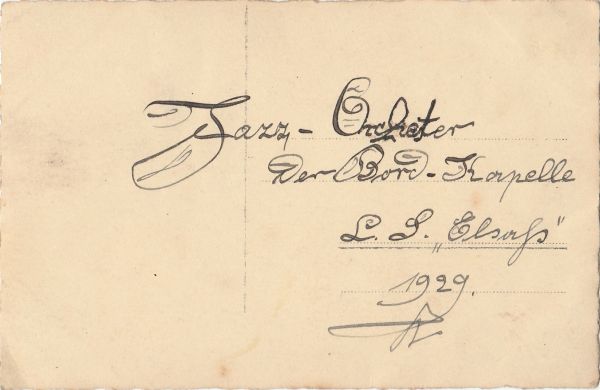 Jazz-Orchester
Der Bord-Kapelle
L. S. „Elsaß"
1929.